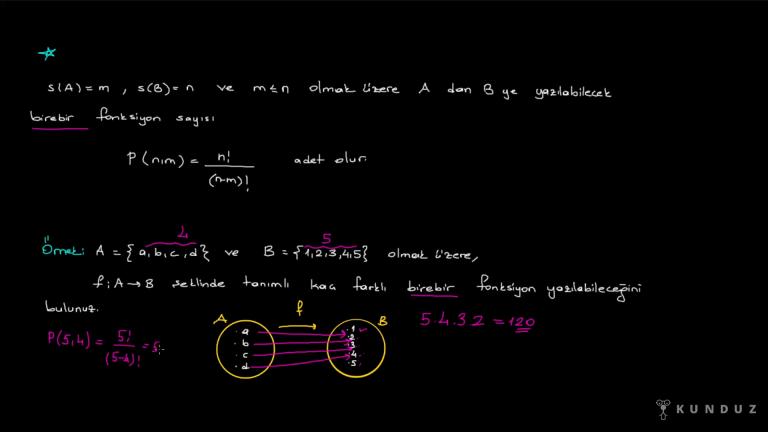 s(A) = m , s(B) = n ve m ≤ n olmak üzere A dan B ye yazılabilecek
birebir fonksiyon sayısı
P(n,m) = n! / (n-m)! adet olur.
4 5
Örnek: A = {a,b,c,d} ve B = {1,2,3,4,5} olmak üzere,
f: A → B şeklinde tanımlı kaç farklı birebir fonksiyon yazılabileceğini
bulunuz.
P(5,4) = 5! / (5-4)! = 5!
A f B
a b c d
1 2 3 4 5
5.4.3.2 = 120
KUNDUZ